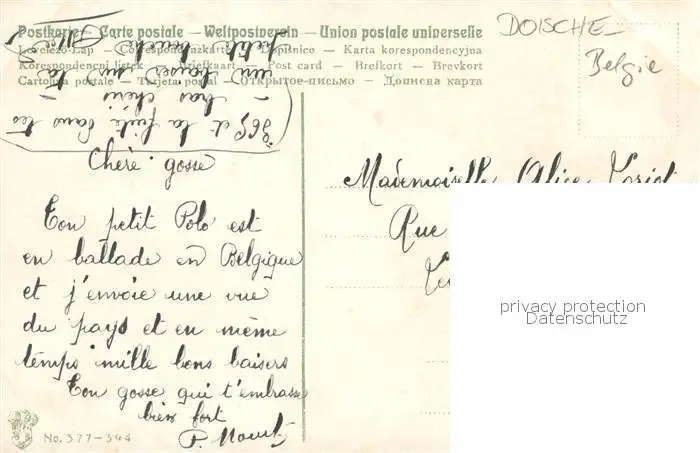 Postkarte — Carte postale — Weltpostverein — Union postale universelle
Levelező-Lap — Correspondenzkarte — Dopisnice — Karta korespondencyjna
Korespondenční lístek — Brefkaart — Post card — Brefkort — Brevkort
Cartolina postale — Tarjeta postal — Открытое письмо — Дописна карта
DOISCHE —
Belgie
Chère gosse
Ton petit Polo est
en ballade en Belgique
et j'envoie une vue
du pays et en même
temps mille bons baisers
Ton gosse qui t'embrasse
bien fort
P.
et la suite dans tes
bras chéri —
un baiser sur ta
petite bouche
Mademoiselle Alice
Rue
No. 377-394
privacy protection
Datenschutz